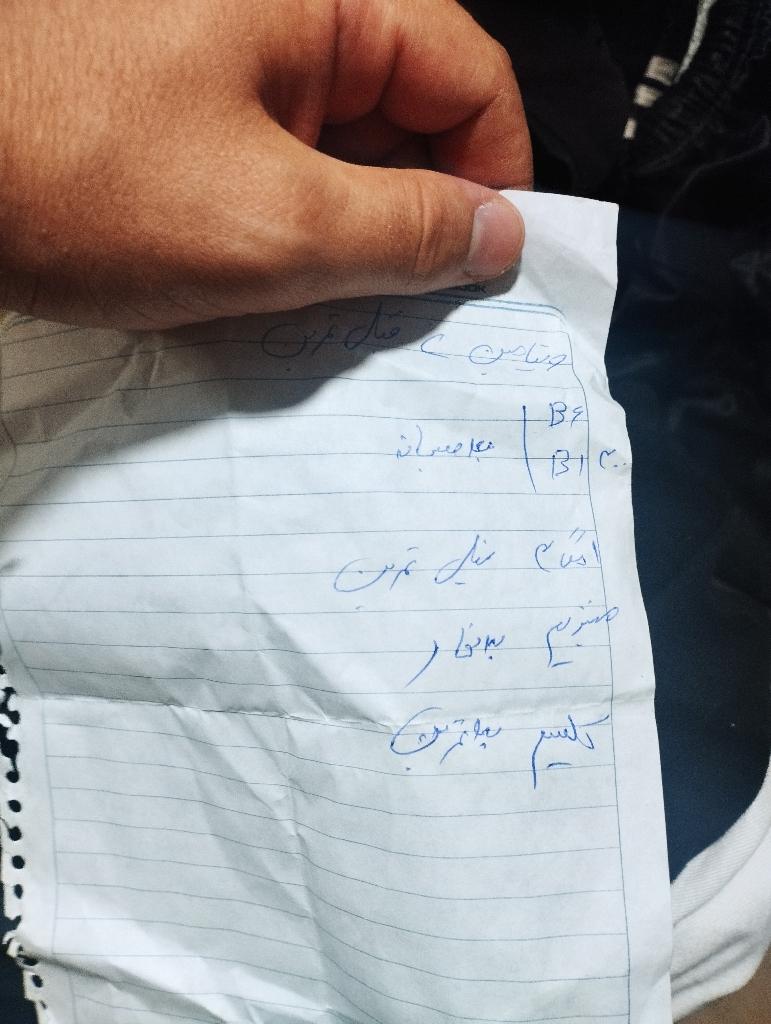 ویتامین C قبل تمرین
B6
B1 300 بعد صبحانه
امگا۳ قبل تمرین
منیزیم بعد ناهار
کلسیم بعد تمرین